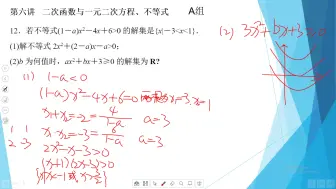 第六讲 二次函数与一元二次方程、不等式 A组
12. 若不等式(1-a)x²-4x+6>0 的解集是{x|-3<x<1}.
(1)解不等式 2x²+(2-a)x-a>0;
(2)b 为何值时, ax²+bx+3≥0 的解集为 R?
(1) 1-a<0
(1-a)x²-4x+6=0 x=-3,x=1
x₁+x₂=-2=4/(1-a) a=3
x₁x₂=-3=6/(1-a) a=3
2x²-x-3>0
(x+1)(2x-3)>0
1 1
2 -3
{x|x<-1或x>3/2}
(2) 3x²+bx+3≥0